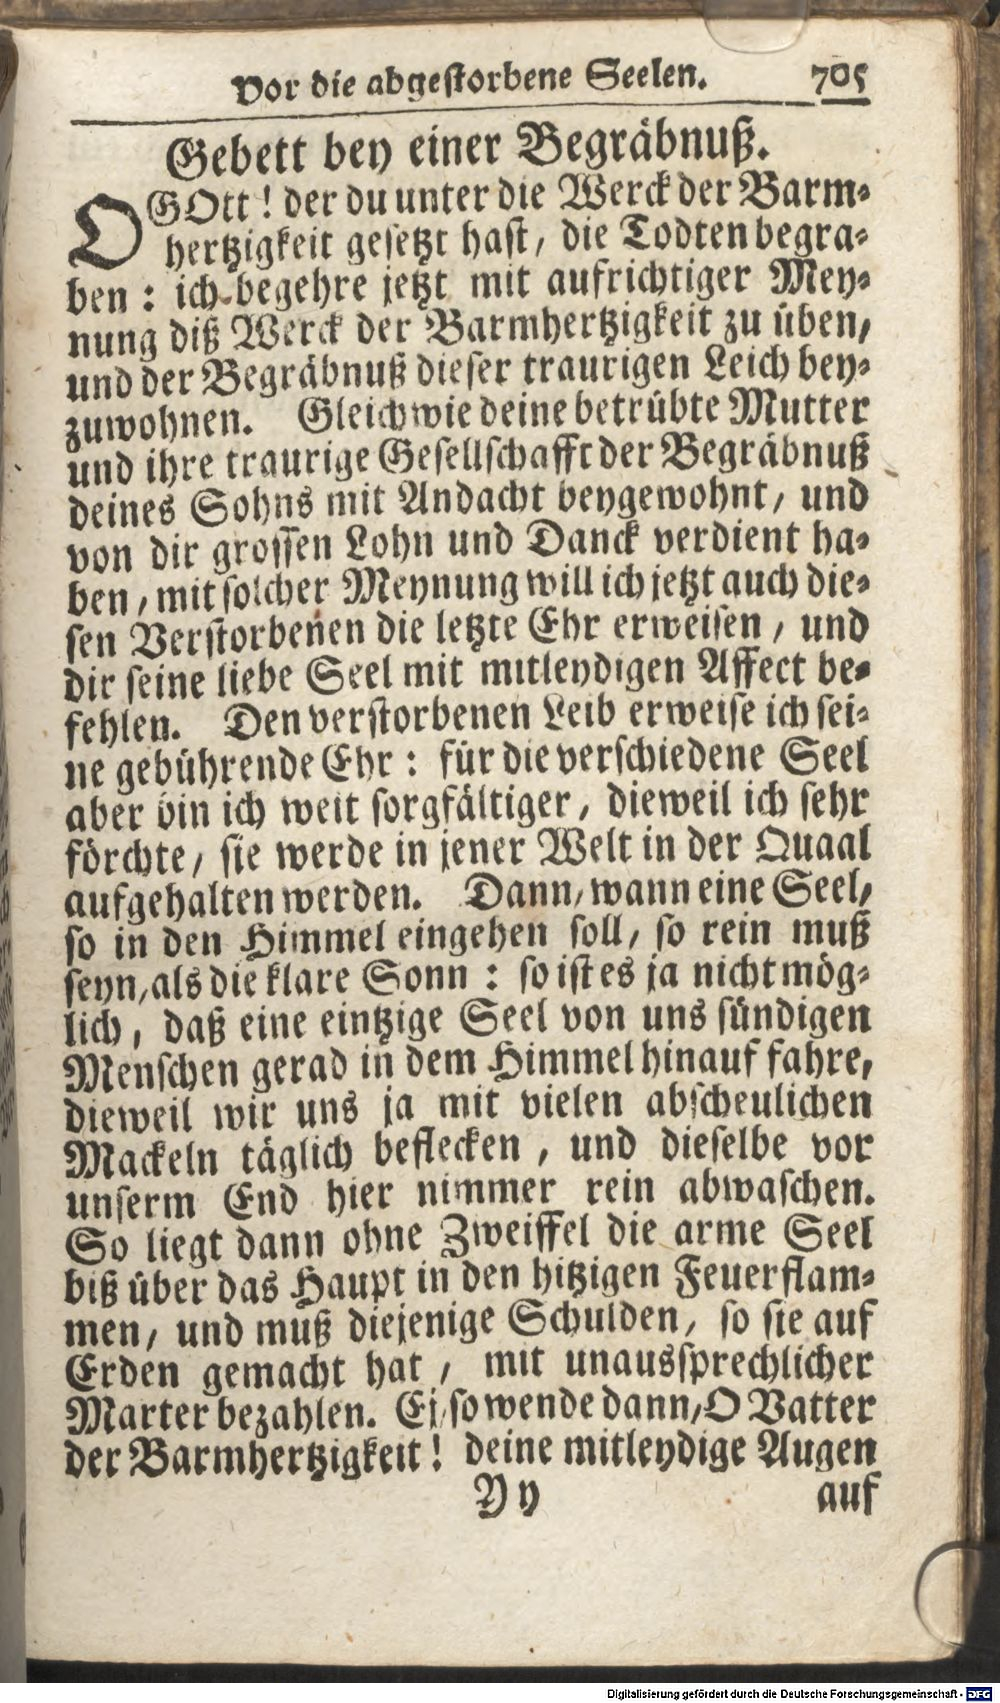 Vor die abgestorbene Seelen. 705
Gebett bey einer Begräbnuß.
O GOtt! der du unter die Werck der Barm-
hertzigkeit gesetzt hast, die Todten begra-
ben: ich begehre jetzt mit aufrichtiger Mey-
nung diß Werck der Barmhertzigkeit zu üben,
und der Begräbnuß dieser traurigen Leich bey-
zuwohnen. Gleichwie deine betrübte Mutter
und ihre traurige Gesellschafft der Begräbnuß
deines Sohns mit Andacht beygewohnt, und
von dir grossen Lohn und Danck verdient ha-
ben, mit solcher Meynung will ich jetzt auch die-
sen Verstorbenen die letzte Ehr erweisen, und
dir seine liebe Seel mit mitleydigen Affect be-
fehlen. Den verstorbenen Leib erweise ich sei-
ne gebührende Ehr: für die verschiedene Seel
aber bin ich weit sorgfältiger, dieweil ich sehr
förchte, sie werde in jener Welt in der Quaal
aufgehalten werden. Dann, wann eine Seel,
so in den Himmel eingehen soll, so rein muß
seyn, als die klare Sonn: so ist es ja nicht mög-
lich, daß eine eintzige Seel von uns sündigen
Menschen gerad in dem Himmel hinauf fahre,
dieweil wir uns ja mit vielen abscheulichen
Mackeln täglich beflecken, und dieselbe vor
unserm End hier nimmer rein abwaschen.
So liegt dann ohne Zweiffel die arme Seel
biß über das Haupt in den hitzigen Feuerflam-
men, und muß diejenige Schulden, so sie auf
Erden gemacht hat, mit unaussprechlicher
Marter bezahlen. Ei, so wende dann, O Vatter
der Barmhertzigkeit! deine mitleydige Augen
Yy auf
Digitalisierung gefördert durch die Deutsche Forschungsgemeinschaft - DFG